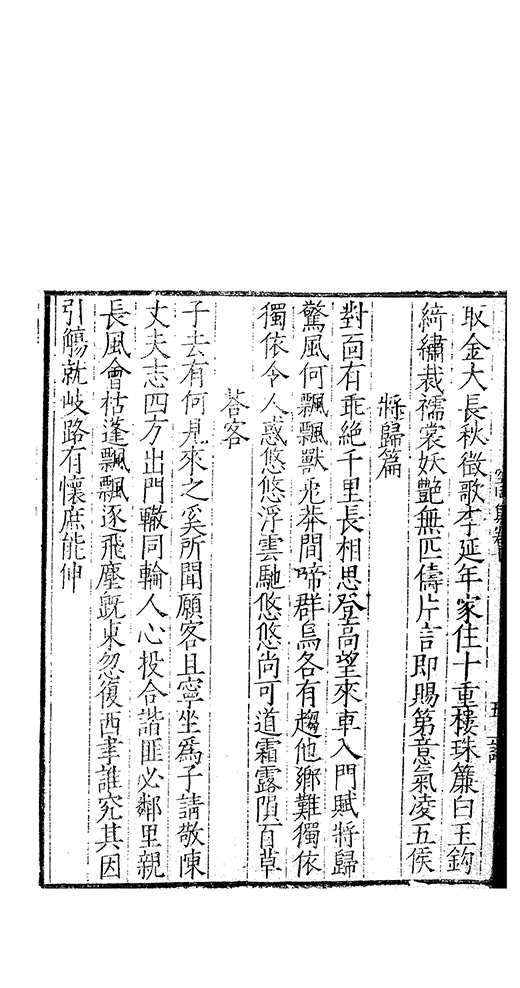 取金大長秋徵歌李延年家住十重樓珠簾白玉鈎
綺繡裁襦裳妖艷無匹儔片言即賜第意氣凌五侯
將歸篇
對面有乖絶千里長相思登高望來車入門賦將歸
驚風何飄飄獸走莽間啼群烏各有趨他鄉難獨依
獨依令人惑悠悠浮雲馳悠悠尚可道霜露隕百草
荅客
子去有何見來之奚所聞願客且寧坐為子請敬陳
丈夫志四方出門轍同輪人心投合諧匪必鄰里親
長風會枯蓬飄飄逐飛塵旣東忽復西聿誰究其因
引觴就岐路有懷庶能伸